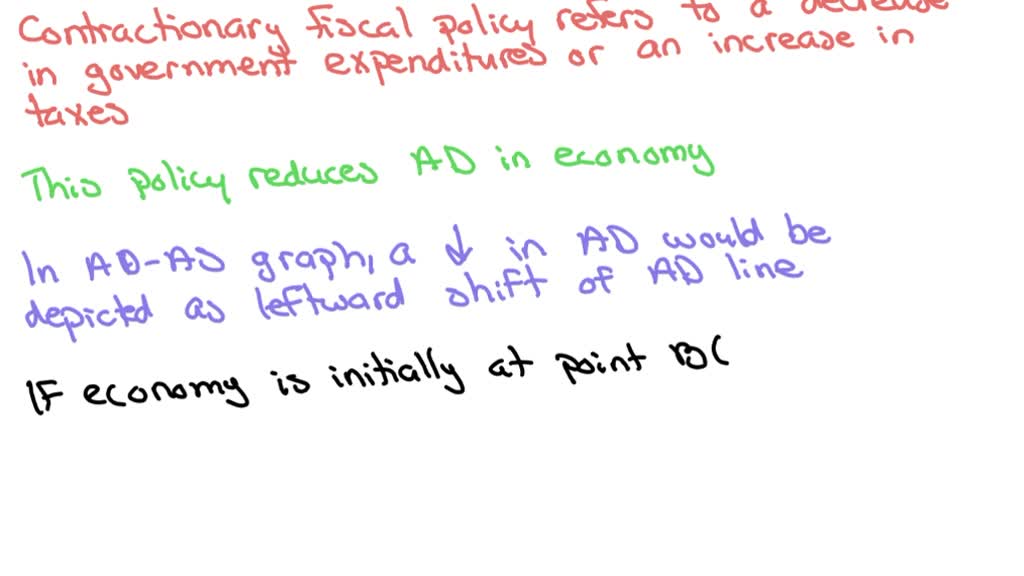 Contractionary fiscal policy refers to a decrease
in government expenditures or an increase in
taxes
This policy reduces AD in economy
In AD-AS graph, a ↓ in AD would be
depicted as leftward shift of AD line
IF economy is initially at point B(